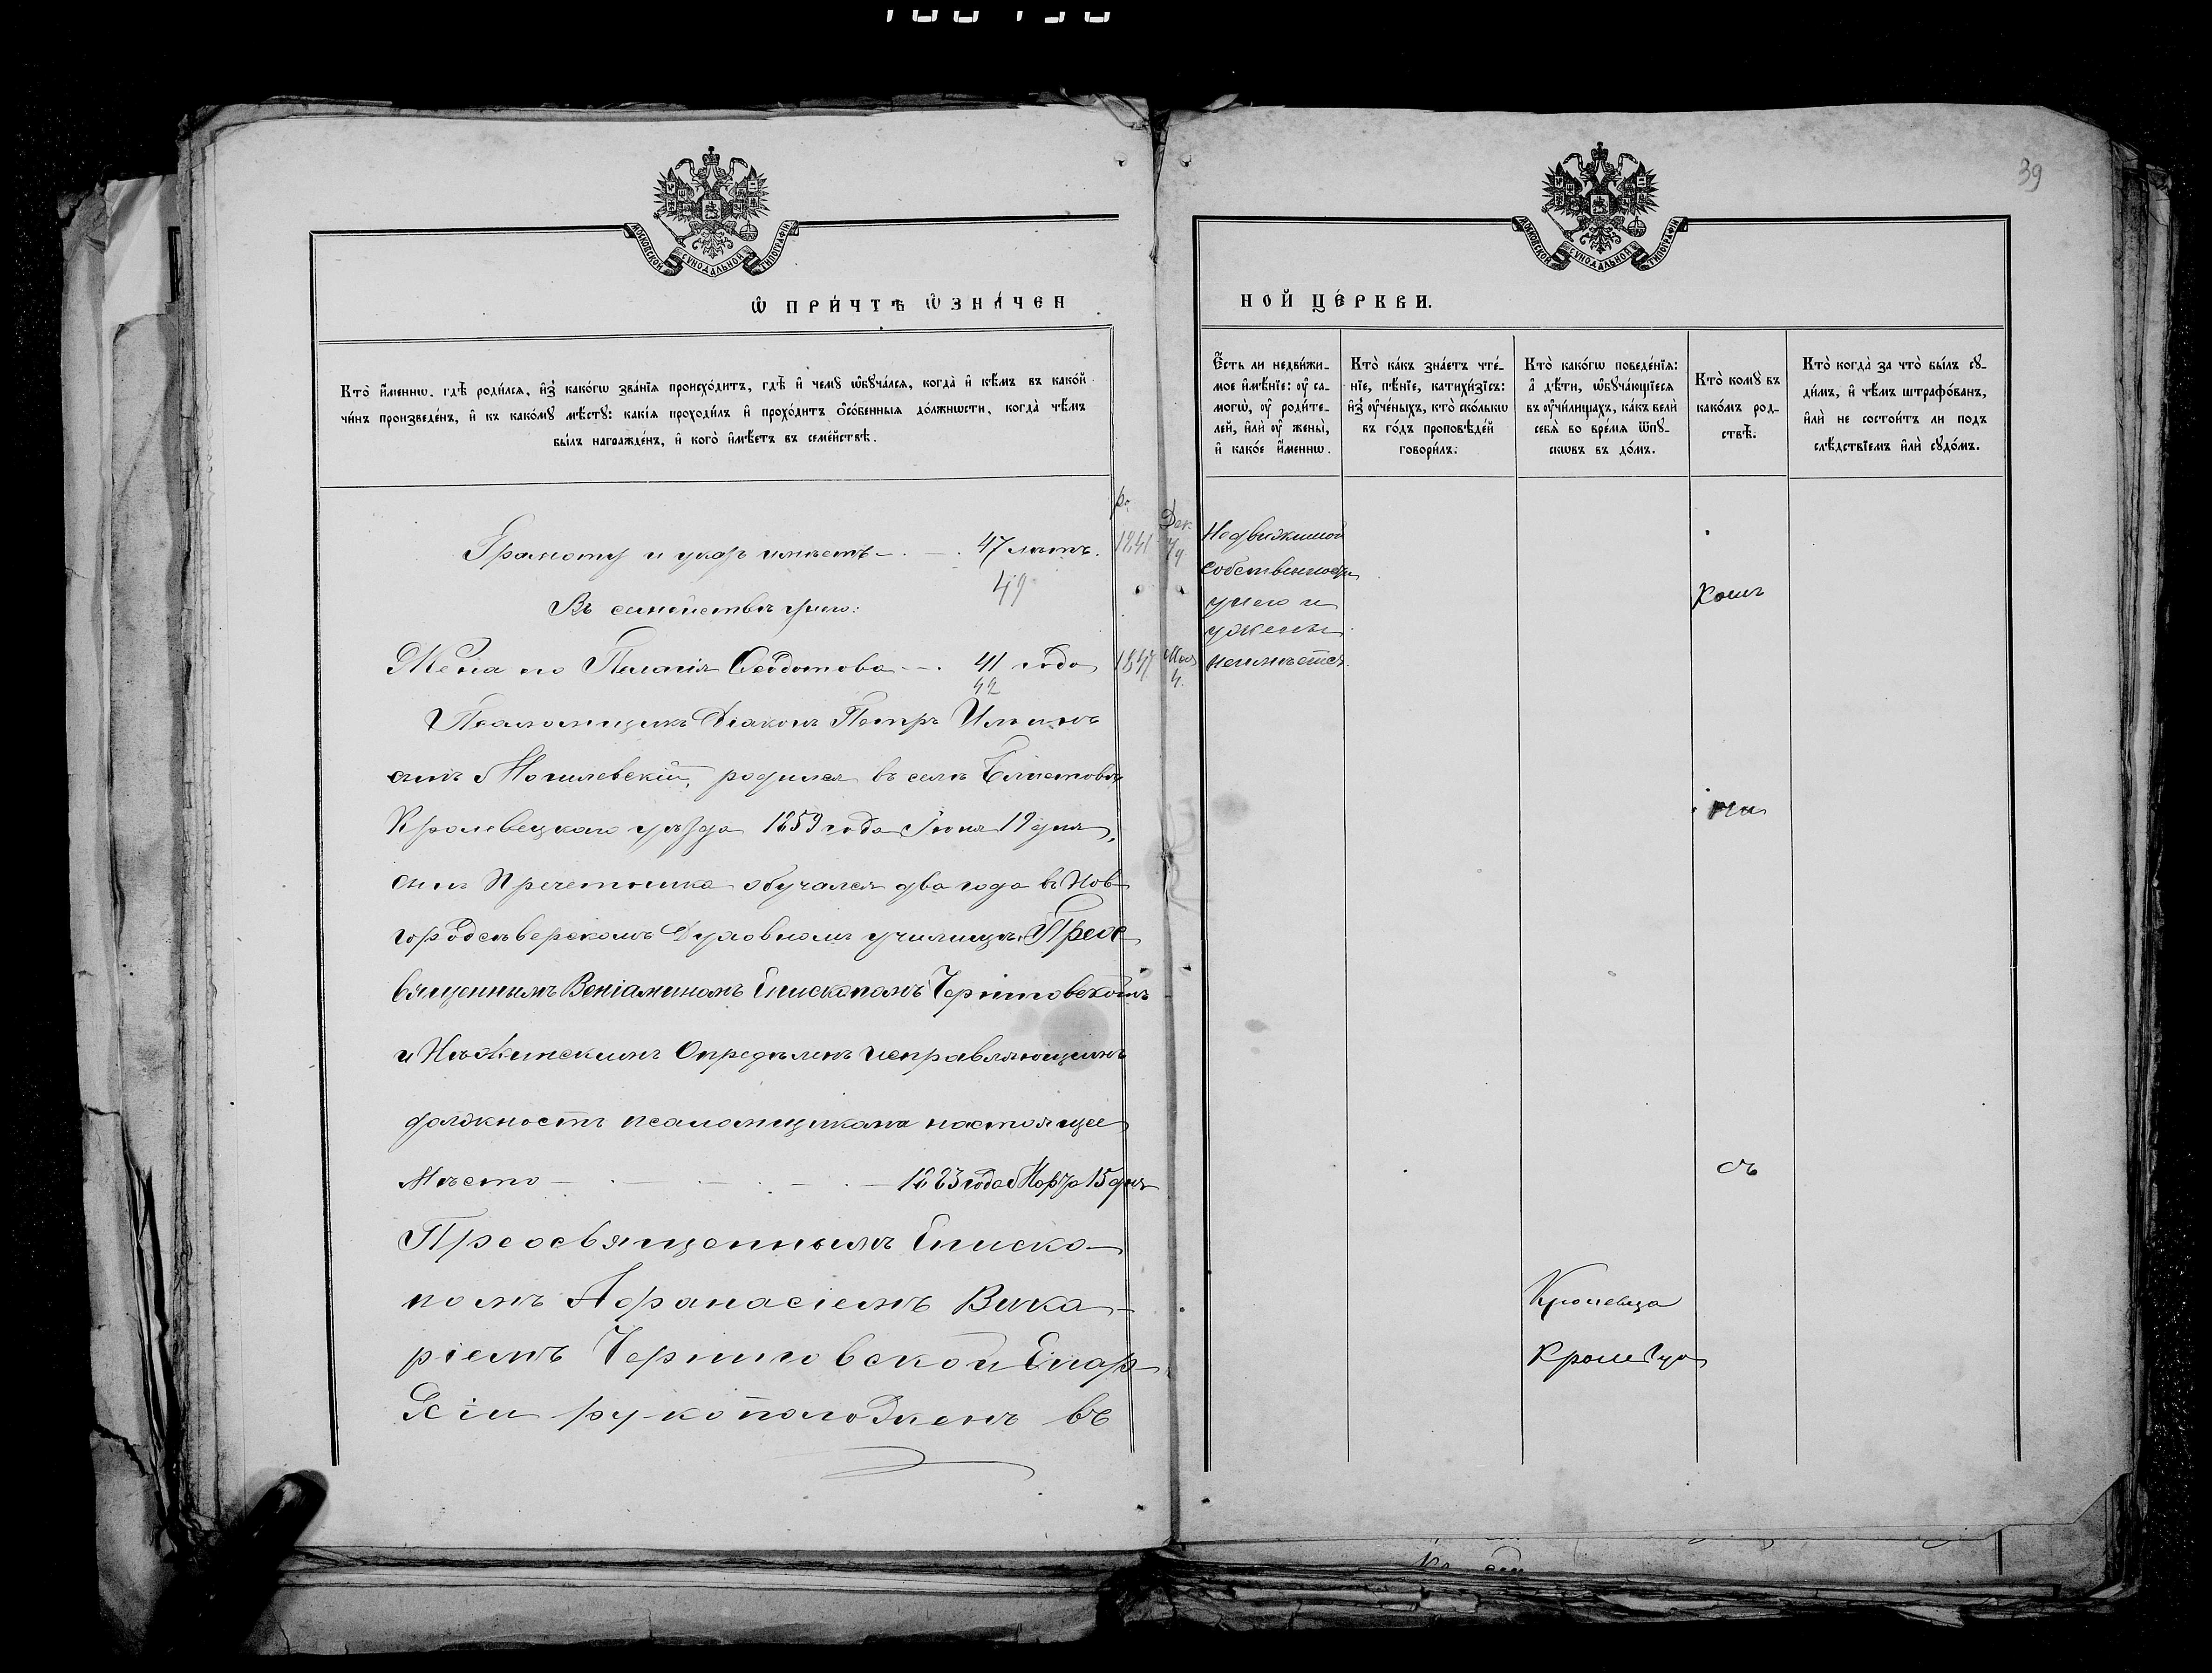 39
МОСКОВСКОЙ СѴНОДАЛЬНОЙ ТИПОГРАФІИ
МОСКОВСКОЙ СѴНОДАЛЬНОЙ ТИПОГРАФІИ
Ѡ҆ ПРИ́ЧТѢ Ѡ҆ЗНА́ЧЕН
НОЙ ЦЕ́РКВИ.
Кто̀ и҆́меннѡ, гдѣ̀ роди́лсѧ, и҆з̾ како́гѡ зва́нїѧ происхо́дитъ, гдѣ̀ и҆ чемꙋ̀ ѡ҆бꙋча́лсѧ, когда̀ и҆ кѣ́мъ въ како́й
чи́нъ произведе́нъ, и҆ къ како́мꙋ мѣ́стꙋ: какі́ѧ проходи́лъ и҆ прохо́дитъ ѻ҆со́бенныѧ до́лжнѡсти, когда̀ чѣ́мъ
бы́лъ награжде́нъ, и҆ кого̀ и҆мѣ́етъ въ семе́йствѣ.
Е҆́сть ли недви́жи-
мое и҆мѣ́нїе: ᲂу҆ са-
могѡ̀, ᲂу҆ роди́те-
лей, и҆лѝ ᲂу҆ жены̀,
и҆ како́е и҆́меннѡ.
Кто̀ ка́къ зна́етъ чте́-
нїе, пѣ́нїе, катихи́зїсъ:
и҆з̾ ᲂу҆че́ныхъ, кто̀ ско́лькѡ
въ го́дъ проповѣ́дей
говори́лъ.
Кто̀ како́гѡ поведе́нїѧ:
а҆ дѣ́ти, ѡ҆бꙋча́ющїесѧ
въ ᲂу҆чи́лищахъ, ка́къ велѝ
себѧ̀ во вре́мѧ ѿпꙋ-
скѡвъ въ до́мъ.
Кто̀ комꙋ̀ въ
како́мъ род-
ствѣ̀.
Кто̀ когда̀ за что̀ бы́лъ сꙋ-
ди́мъ, и҆ чѣ́мъ штрафо́ванъ,
и҆лѝ не состои́тъ ли подъ
слѣ́дствїемъ и҆лѝ сꙋдо́мъ.
Грамоту и указъ имѣетъ 47 лѣтъ. 1841 Дек.
49
Въ семействѣ у него:
Жена его Пелагія Ѳеодотова 41 года 1847
42
Псаломщикъ Діаконъ Петръ Ильинъ
сынъ Могилевскій, родился въ селѣ
Кролевецкаго уѣзда 1859 года Іюня 19 дня,
сынъ Причетника обучался два года въ Нов
городсѣверскомъ Духовномъ училищѣ. Преос
вященнымъ Веніаминомъ Епископомъ Черниговскимъ
и Нѣжинскимъ Опредѣленъ исправляющимъ
должность псаломщика на настоящее
Мѣсто 1883 года Марта 15 дня
Преосвященнымъ Еписко-
помъ Аѳанасіемъ Вика-
ріемъ Черниговской Епар-
хіи рукоположенъ въ
Недвижимой
собственности
у него и
у жены
неимѣется.
съ
Кролевца